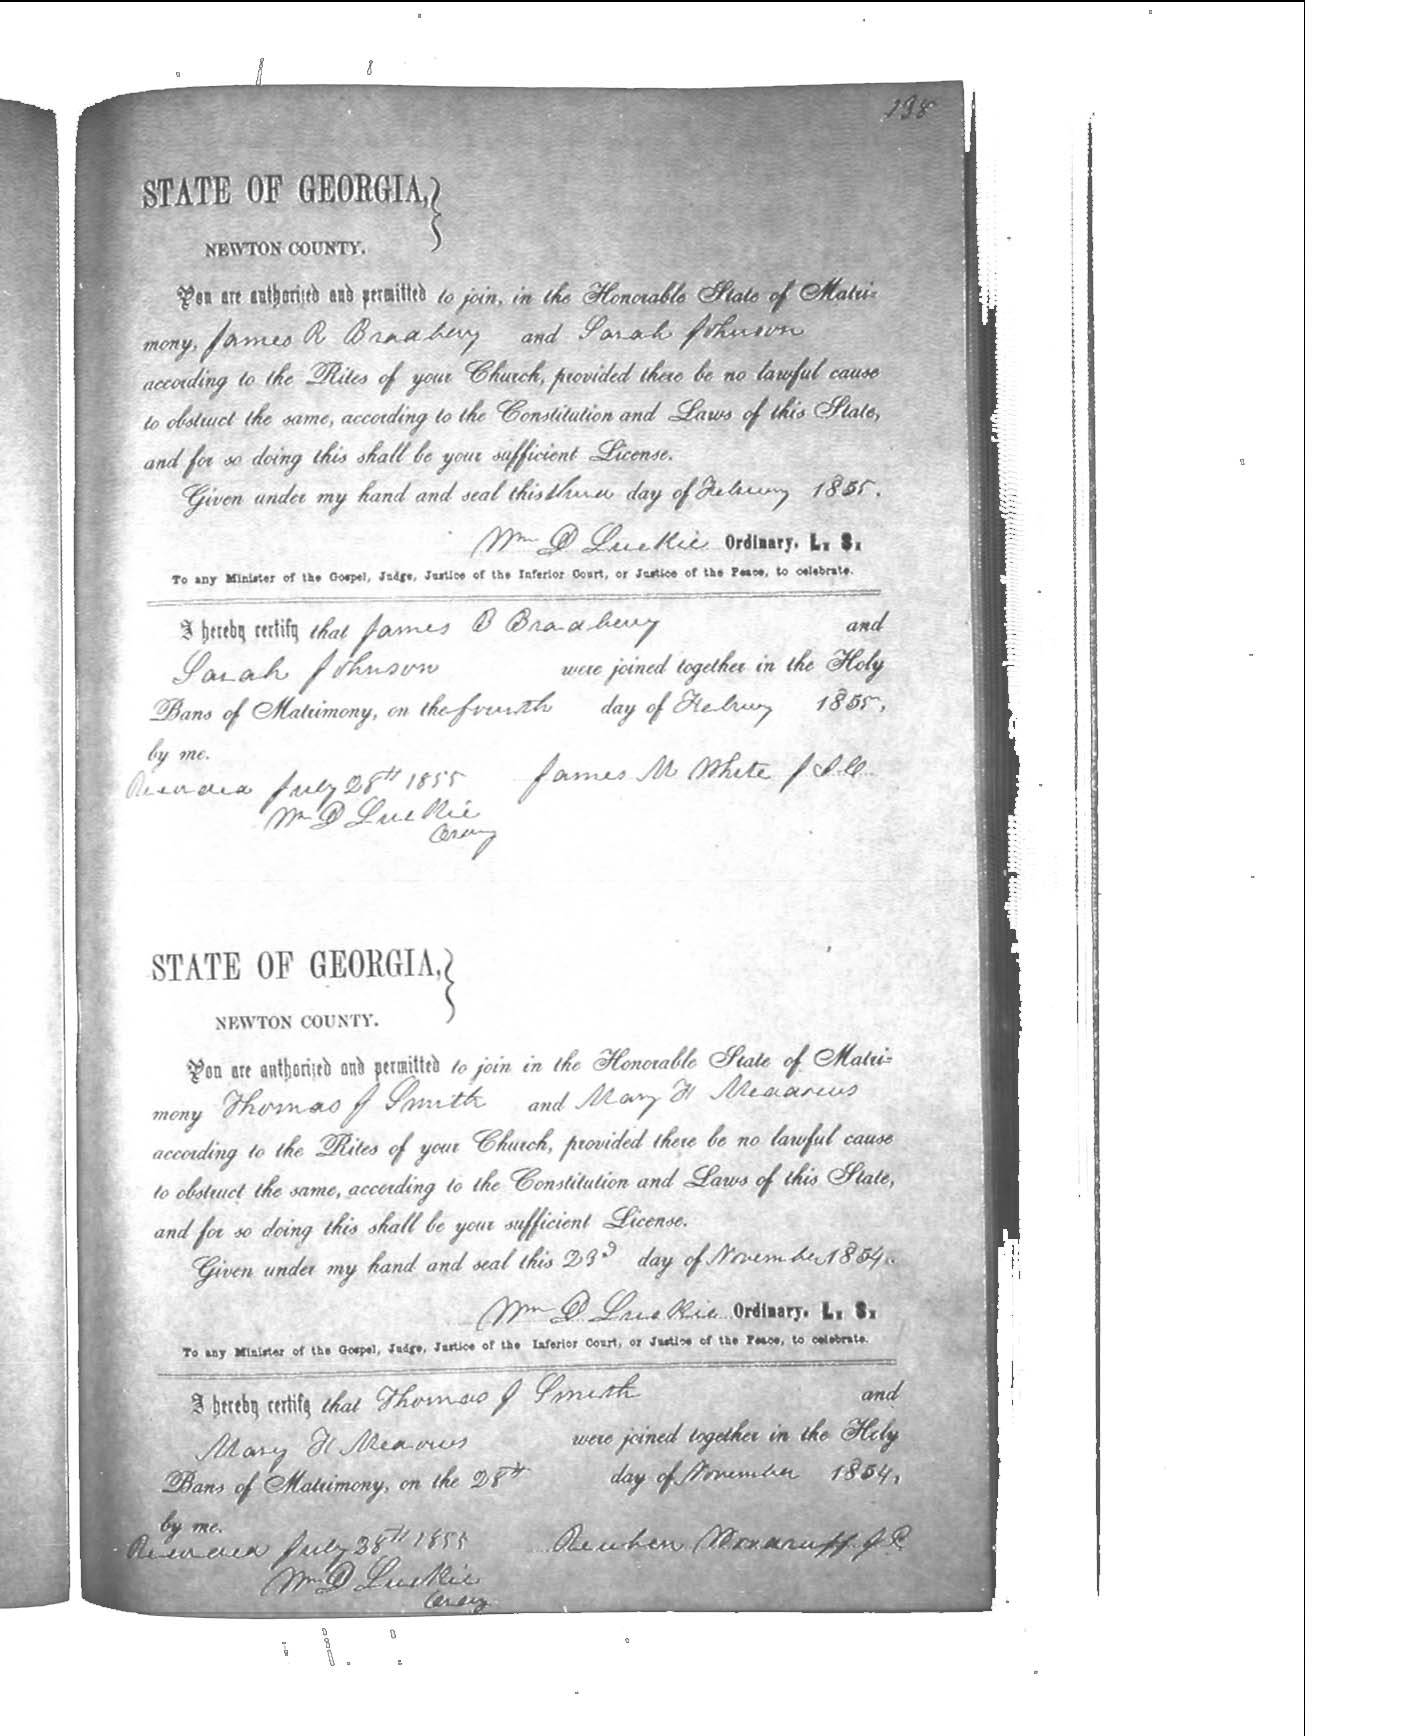 198
STATE OF GEORGIA,
NEWTON COUNTY.
You are authorized and permitted to join, in the Honorable State of Matri-
mony, James R Bradbery and Sarah Johnson
according to the Rites of your Church, provided there be no lawful cause
to obstruct the same, according to the Constitution and Laws of this State,
and for so doing this shall be your sufficient License.
Given under my hand and seal this third day of Februry 1855.
Wm D Luckie Ordinary. L. S.
To any Minister of the Gospel, Judge, Justice of the Inferior Court, or Justice of the Peace, to celebrate.
I hereby certify that James B Bradbery and
Sarah Johnson were joined together in the Holy
Bans of Matrimony, on the fourth day of Februry 1855,
by me.
Recorded July 28th 1855 James M White J.I.C.
Wm D Luckie
Ordry
STATE OF GEORGIA,
NEWTON COUNTY.
You are authorized and permitted to join in the Honorable State of Matri-
mony Thomas J Smith and Mary H Meadows
according to the Rites of your Church, provided there be no lawful cause
to obstruct the same, according to the Constitution and Laws of this State,
and for so doing this shall be your sufficient License.
Given under my hand and seal this 23d day of November 1854.
Wm D Luckie Ordinary. L. S.
To any Minister of the Gospel, Judge, Justice of the Inferior Court, or Justice of the Peace, to celebrate.
I hereby certify that Thomas J Smith and
Mary H Meadows were joined together in the Holy
Bans of Matrimony, on the 28th day of November 1854,
by me.
Recorded July 28th 1855 Reuben Woodruff J.P.
Wm D Luckie
Ordry